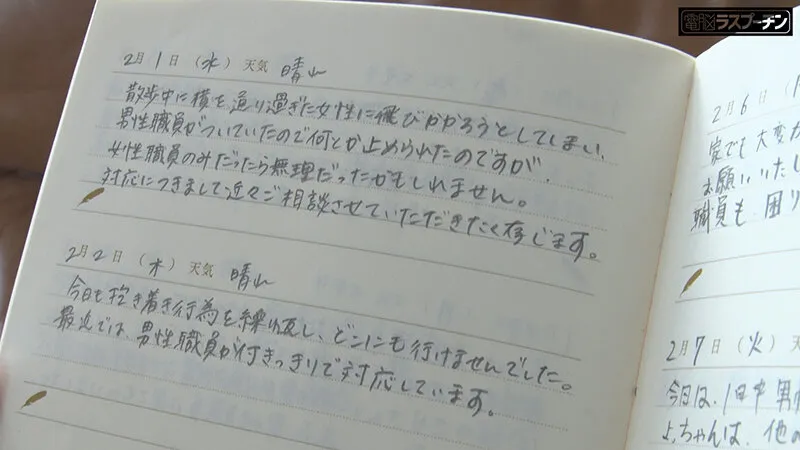 電脳ラスプーチン
2月1日（水）天気 晴れ
散歩中に横を通り過ぎた女性に飛びかかろうとしてしまい、
男性職員がついていたので何とか止められたのですが、
女性職員のみだったら無理だったかもしれません。
対応につきまして近々ご相談させていただきたく存じます。
2月2日（木）天気 晴れ
今日も抱き着き行為を繰り返し、どこにも行けませんでした。
最近では、男性職員が付きっきりで対応しています。
2月6日（
家でも大変
お願いいたし
職員も、困り
2月7日（火）天
今日は、1日中男
よっちゃんは、他の